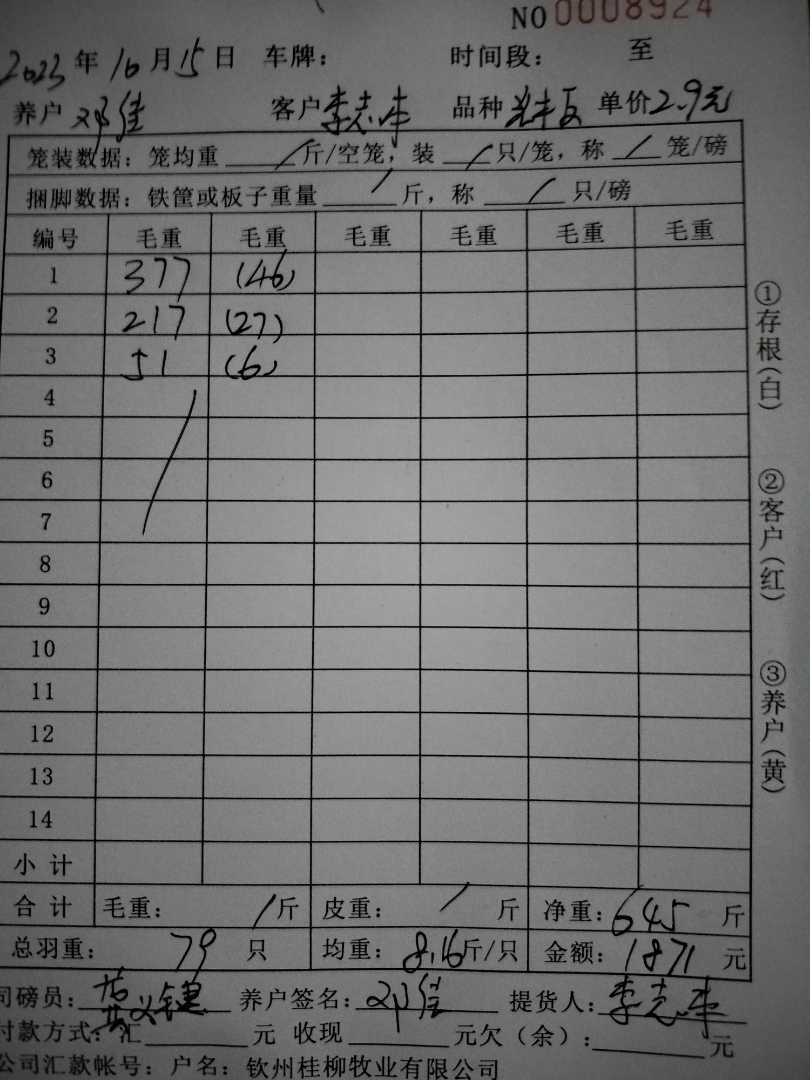 NO 0008924
2023年10月15日 车牌: 时间段: 至
养户 邓佳 客户 李志丰 品种 单价2.9元
笼装数据: 笼均重 / 斤/空笼, 装 / 只/笼, 称 / 笼/磅
捆脚数据: 铁筐或板子重量 / 斤, 称 / 只/磅
编号 毛重 毛重 毛重 毛重 毛重 毛重
1 377 (46)
2 217 (27)
3 51 (6)
4
5
6
7
8
9
10
11
12
13
14
小计
合计 毛重: / 斤 皮重: / 斤 净重: 645 斤
总羽重: 79 只 均重: 8.16斤/只 金额: 1871 元
司磅员: 养户签名: 邓佳 提货人: 李志丰
付款方式: 汇 元 收现 元欠(余): 元
公司汇款帐号: 户名: 钦州桂柳牧业有限公司
①存根(白)
②客户(红)
③养户(黄)